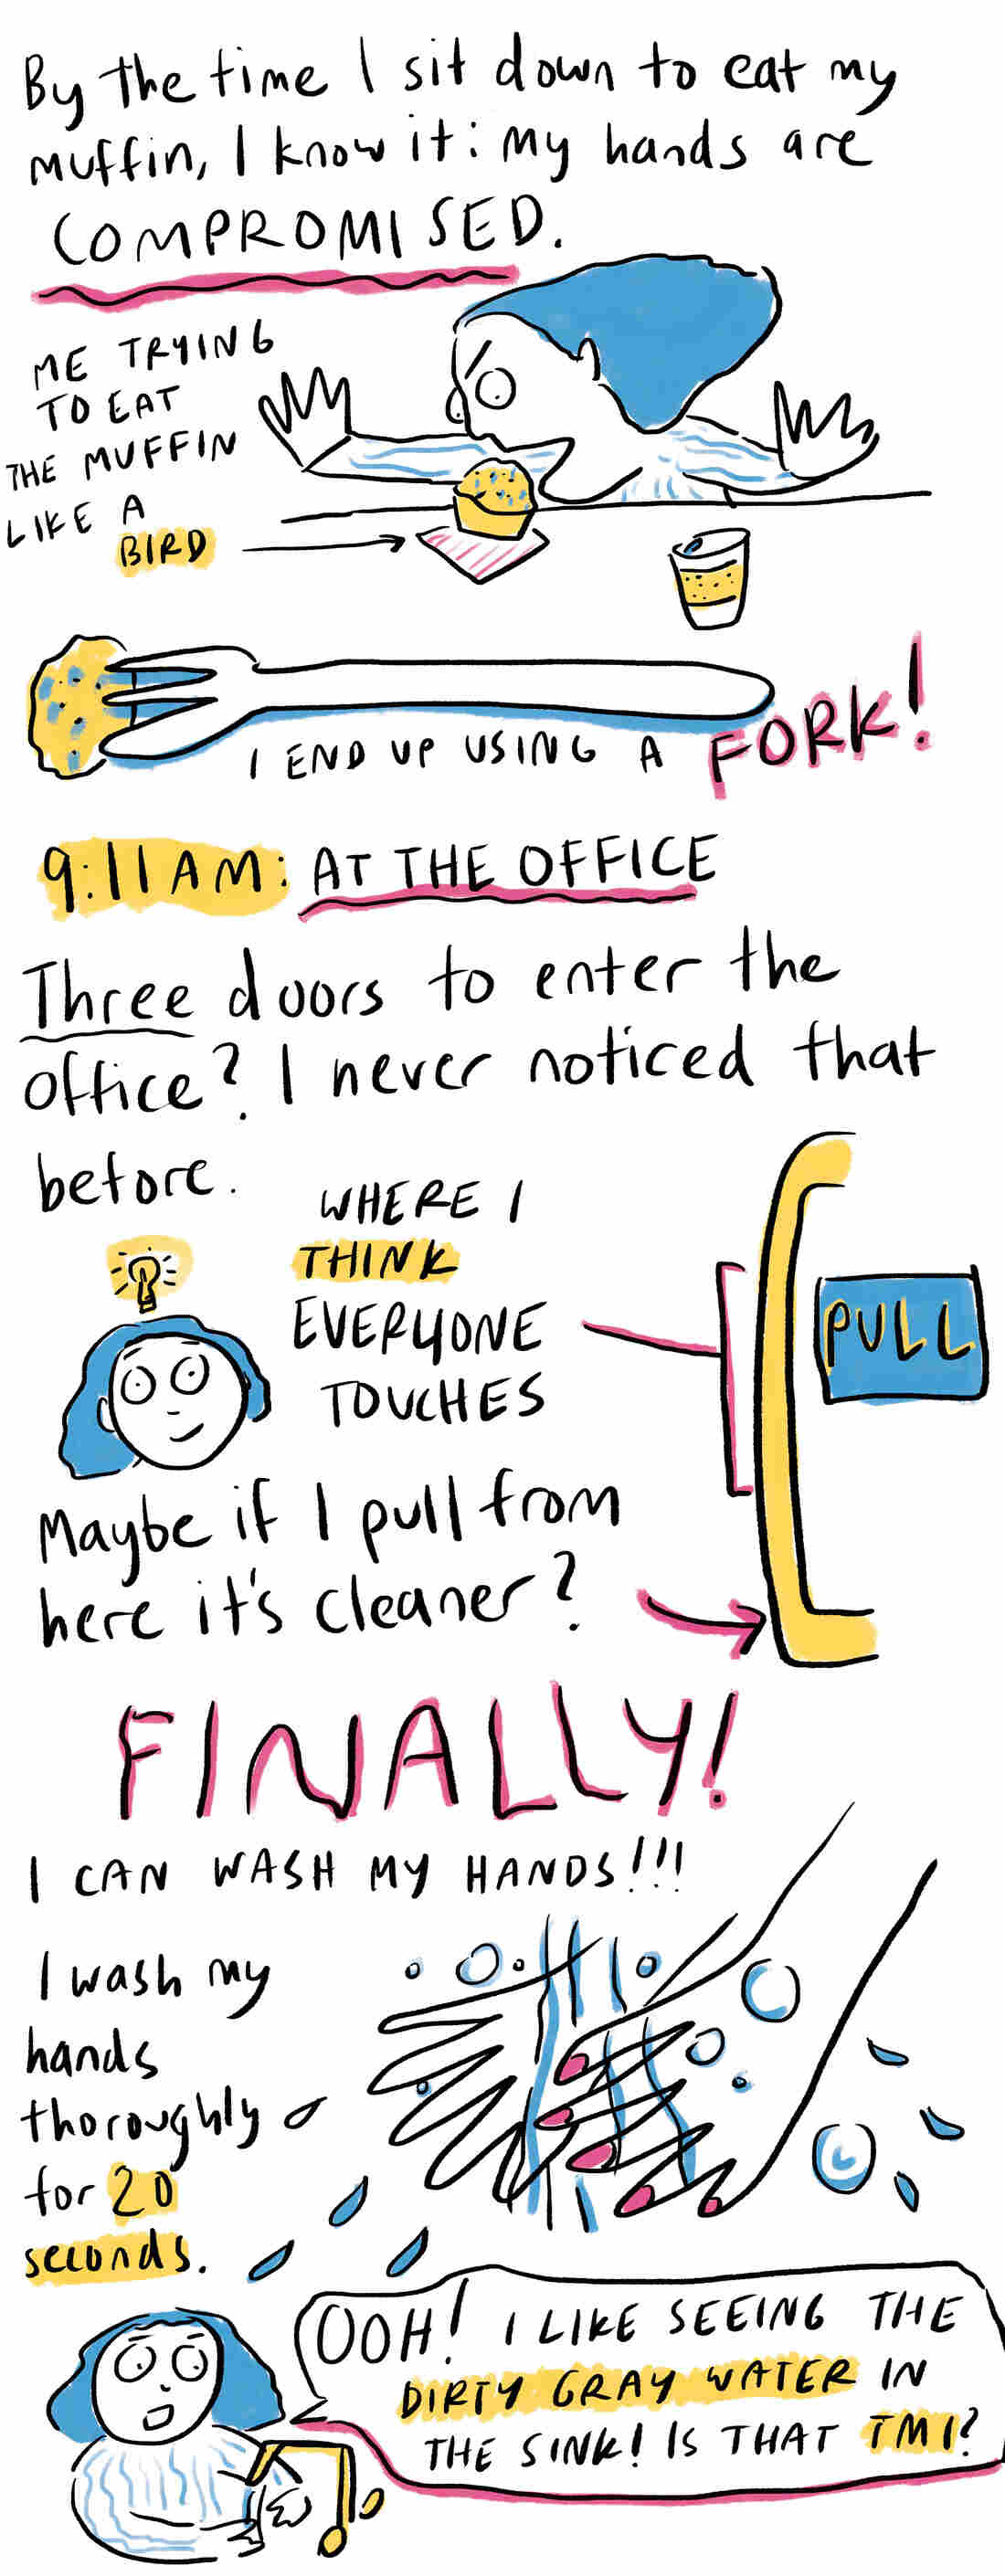 By the time I sit down to eat my
muffin, I know it: my hands are
COMPROMISED.
ME TRYING
TO EAT
THE MUFFIN
LIKE A
BIRD
I END UP USING A FORK!
9:11 AM: AT THE OFFICE
Three doors to enter the
office? I never noticed that
before.
WHERE I
THINK
EVERYONE
TOUCHES
PULL
Maybe if I pull from
here it's cleaner?
FINALLY!
I CAN WASH MY HANDS!!!
I wash my
hands
thoroughly
for 20
seconds.
OOH! I LIKE SEEING THE
DIRTY GRAY WATER IN
THE SINK! IS THAT TMI?